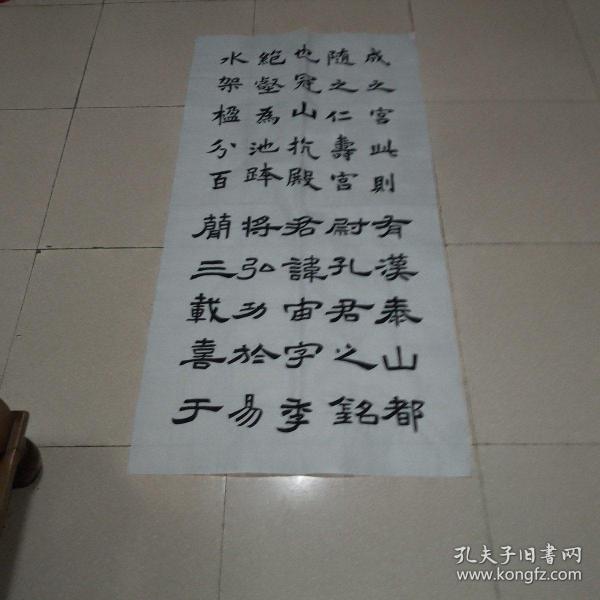 成之宮此則
随之仁壽宮
也冠山抗殿
絕壑為池跨
水架楹分百
有漢泰山都
尉孔君之銘
君諱宙字季
將弘功於易
簡三載喜于
孔夫子旧書网
www.kongfz.com